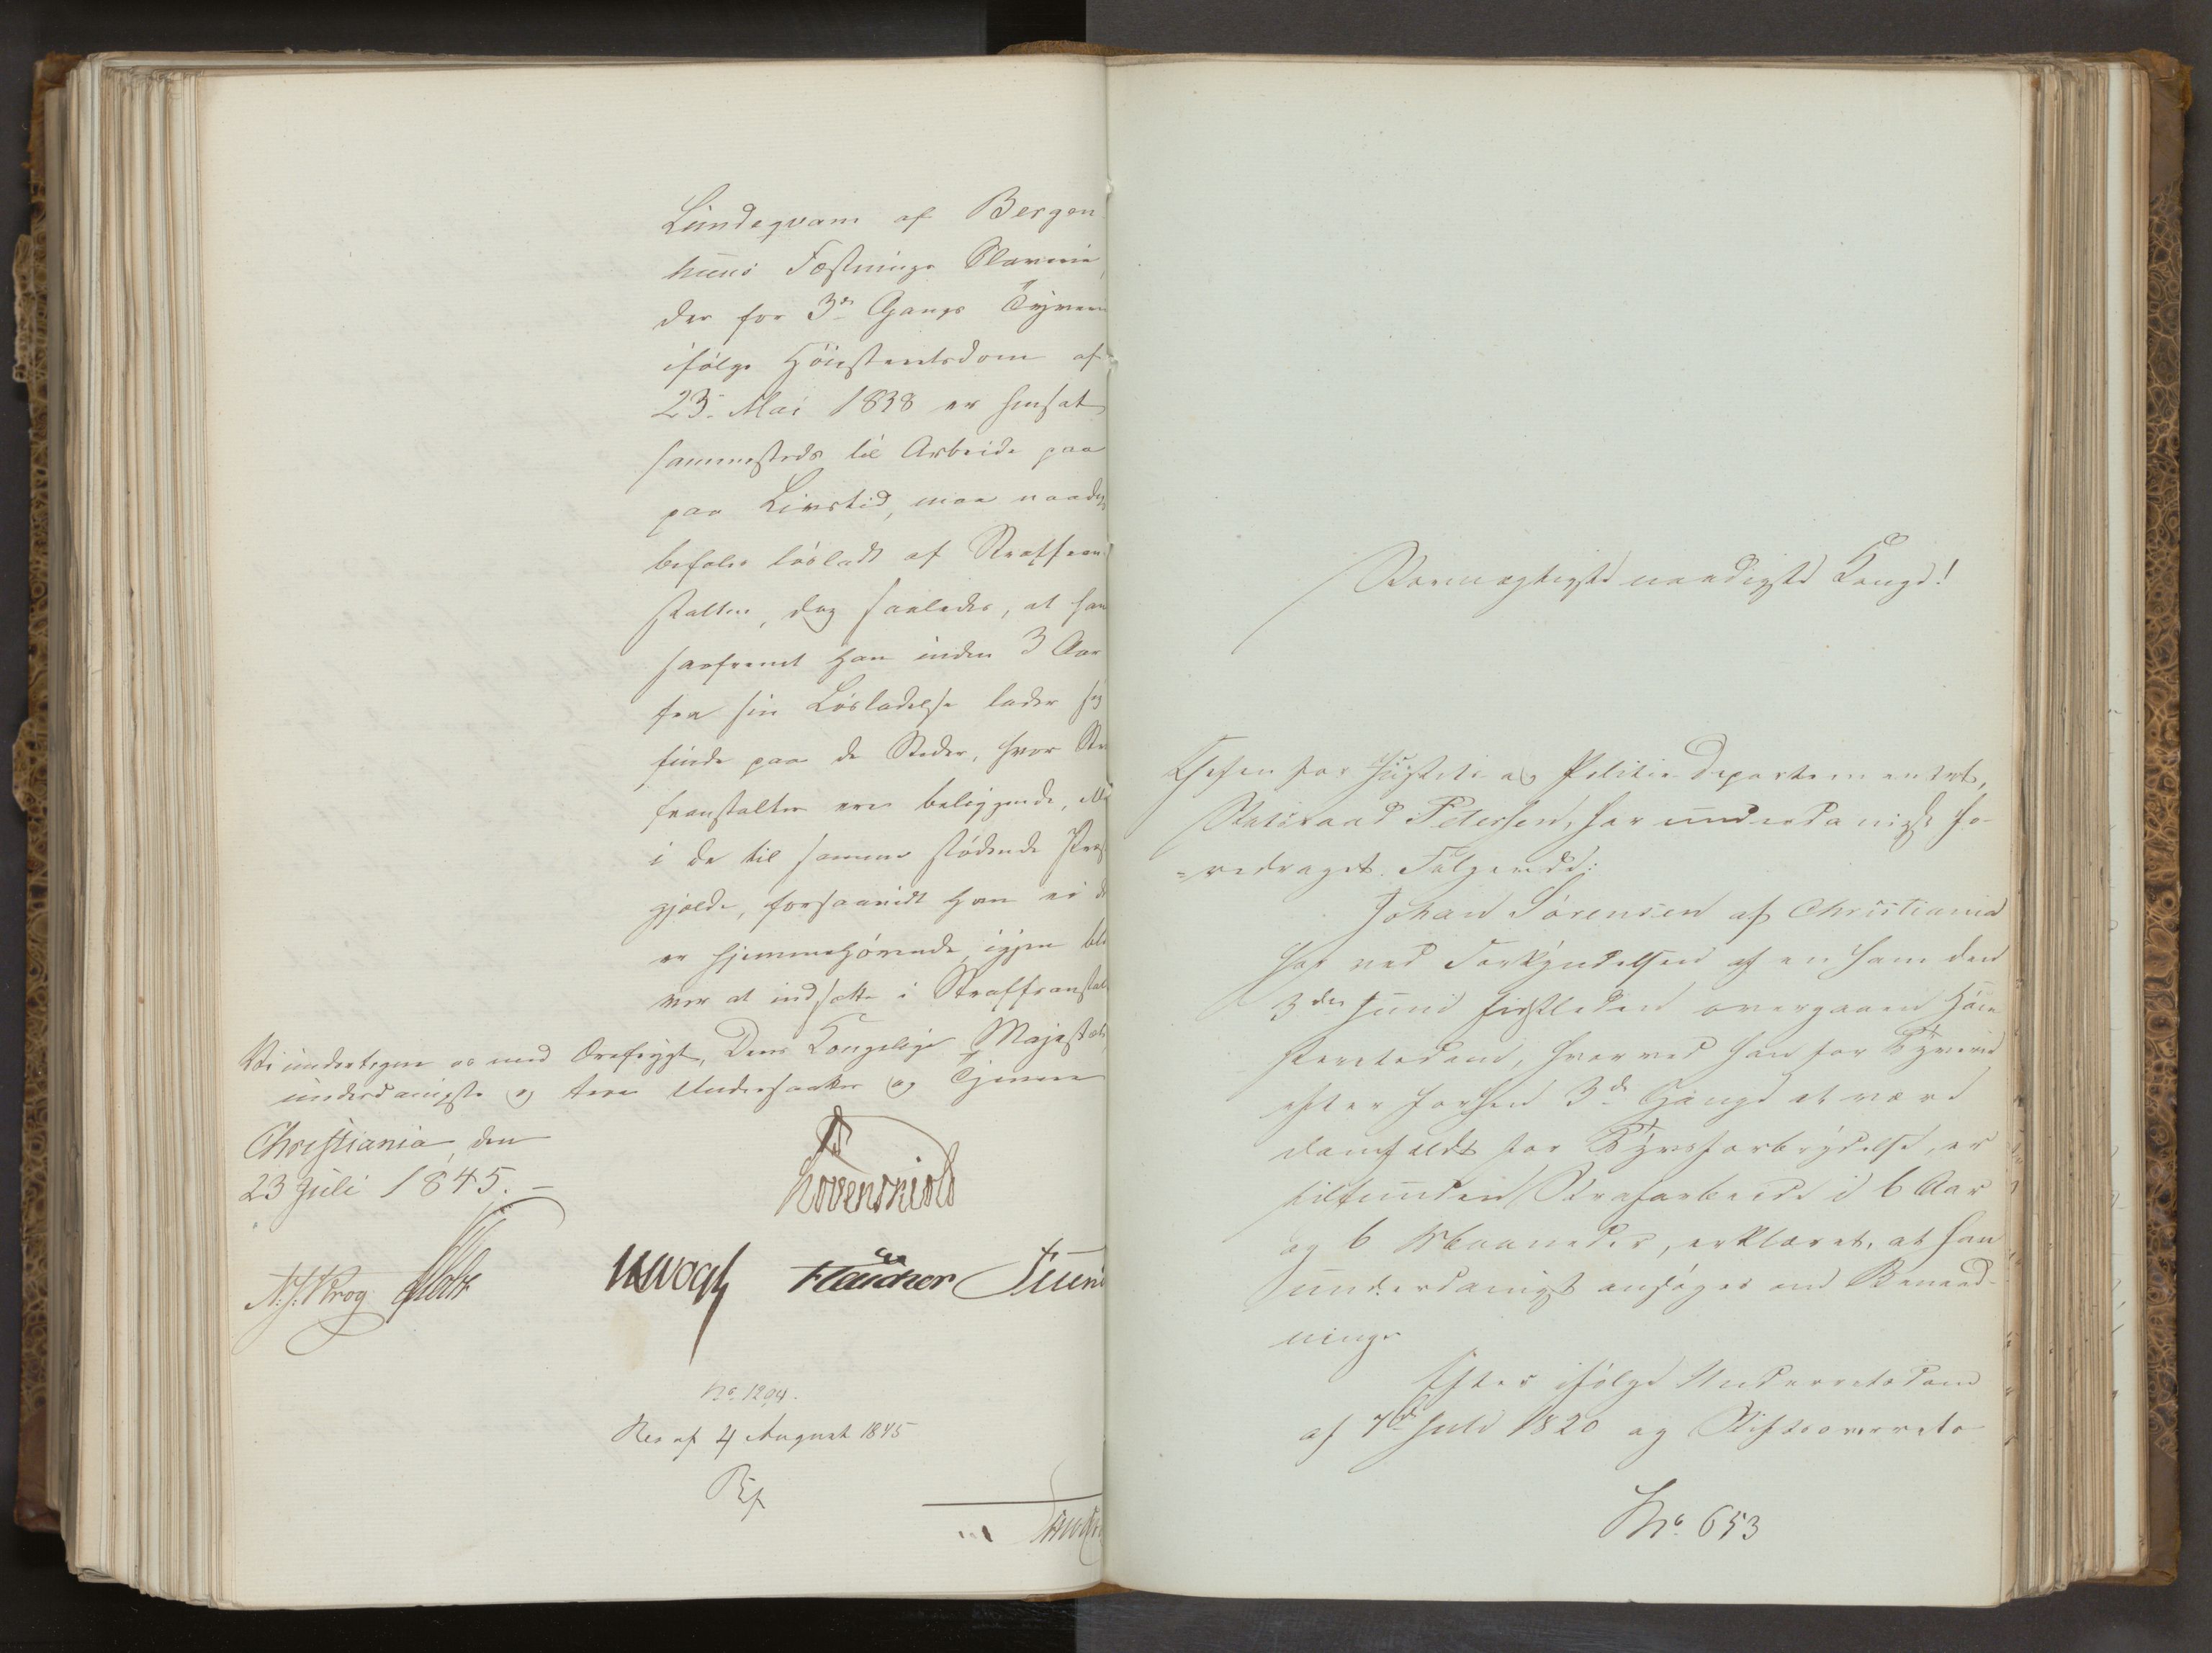 Lundeqvam af Bergen
huus Fæstnings Slaverie,
der for 3de Gangs Tyverie
ifølge Høiesteretsdom af
23. Mai 1838 er hensat
sammesteds til Arbeide paa
paa Livstid, maa naadigst
befales løsladt af Straffean
stalten, dog saaledes, at han
saafremt han inden 3 Aar
fra sin Løsladelse lader sig
finde paa de Steder, hvor Stra
feanstalter ere beliggende, elle
i de til samme stødende Præste
gjælde, forsaavidt han ei de
er hjemmehørende, igjen bli
ver at indsætte i Straffeanstalt
Vi undertegne os med Ærefrygt, Deres Kongelige Majestæts
underdanigste og troe Undersaatter og Tjenere
Christiania, den
23 Juli 1845.-
Løvenskiold
N: J: Krog Holst JHVogt Fleischer
No. 1294.
Res af 4 August 1845
Stormægtigste naadigste Konge!
Chefen for Justits og Politie Departementet,
Statsraad Petersen, har underdanigst fo-
=redraget Følgende:
Johan Sørensen af Christiania
har ved Forkyndelsen af en ham den
3die Juni sidstleden overgaaen Høie
steretsdom, hvorved han for Tyverie
efter forhen 3de Gange at være
domfældt for Tyvsforbrydelse, er
tilfunden Strafarbeide i 6 Aar
og 6 Maaneder, erklæret, at han
underdanigst ansøger om Benaad-
ning.
Efter ifølge Underretsdom
af 7de Juli 1820 og Stiftsoverrets
No. 653